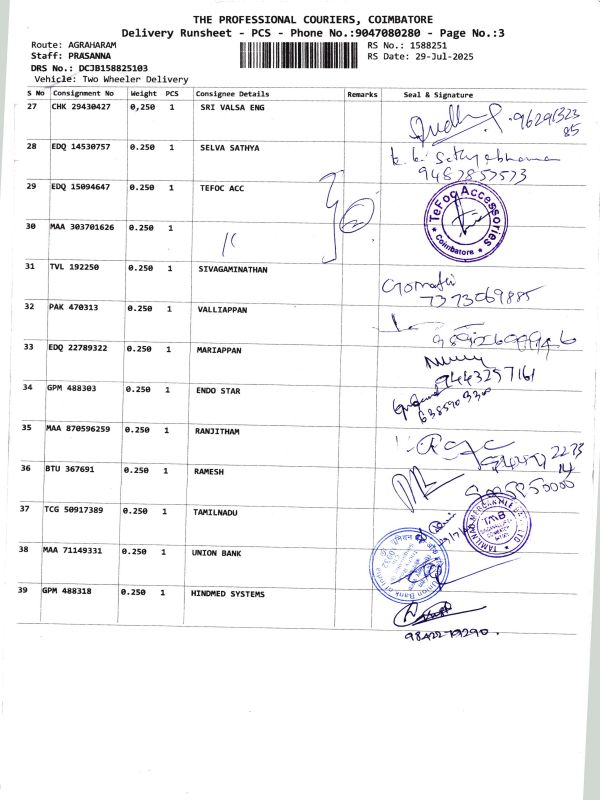 THE PROFESSIONAL COURIERS, COIMBATORE
Delivery Runsheet - PCS - Phone No.:9047080280 - Page No.:3
Route: AGRAHARAM RS No.: 1588251
Staff: PRASANNA RS Date: 29-Jul-2025
DRS No.: DCJB158825103
Vehicle: Two Wheeler Delivery
S No Consignment No Weight PCS Consignee Details Remarks Seal & Signature
27 CHK 29430427 0,250 1 SRI VALSA ENG
28 EDQ 14530757 0.250 1 SELVA SATHYA
9487857573
29 EDQ 15094647 0.250 1 TEFOC ACC
TeFoq Accessories
Coimbatore
30 MAA 303701626 0.250 1 "
31 TVL 192250 0.250 1 SIVAGAMINATHAN
Gomathi
7373069885
32 PAK 470313 0.250 1 VALLIAPPAN
33 EDQ 22789322 0.250 1 MARIAPPAN
9443257161
34 GPM 488303 0.250 1 ENDO STAR
35 MAA 870596259 0.250 1 RANJITHAM
36 BTU 367691 0.250 1 RAMESH
37 TCG 50917389 0.250 1 TAMILNADU
TMB
38 MAA 71149331 0.250 1 UNION BANK
Union Bank of India
39 GPM 488318 0.250 1 HINDMED SYSTEMS
9842279290